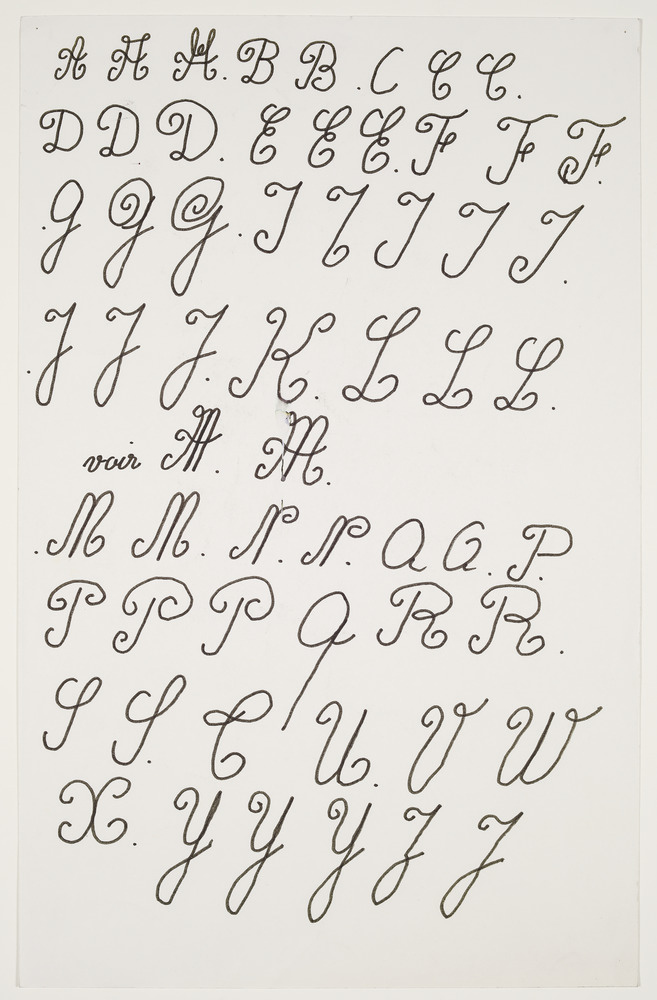 A A A. B B. C C C.
D D D. E E E. F F F.
.G G G. I I I I I.
.J J J. K. L L L.
voir M. M.
.M M. N. N. O O. P.
P P P Q R R.
S S. T U. V W
X. Y Y Y Z Z